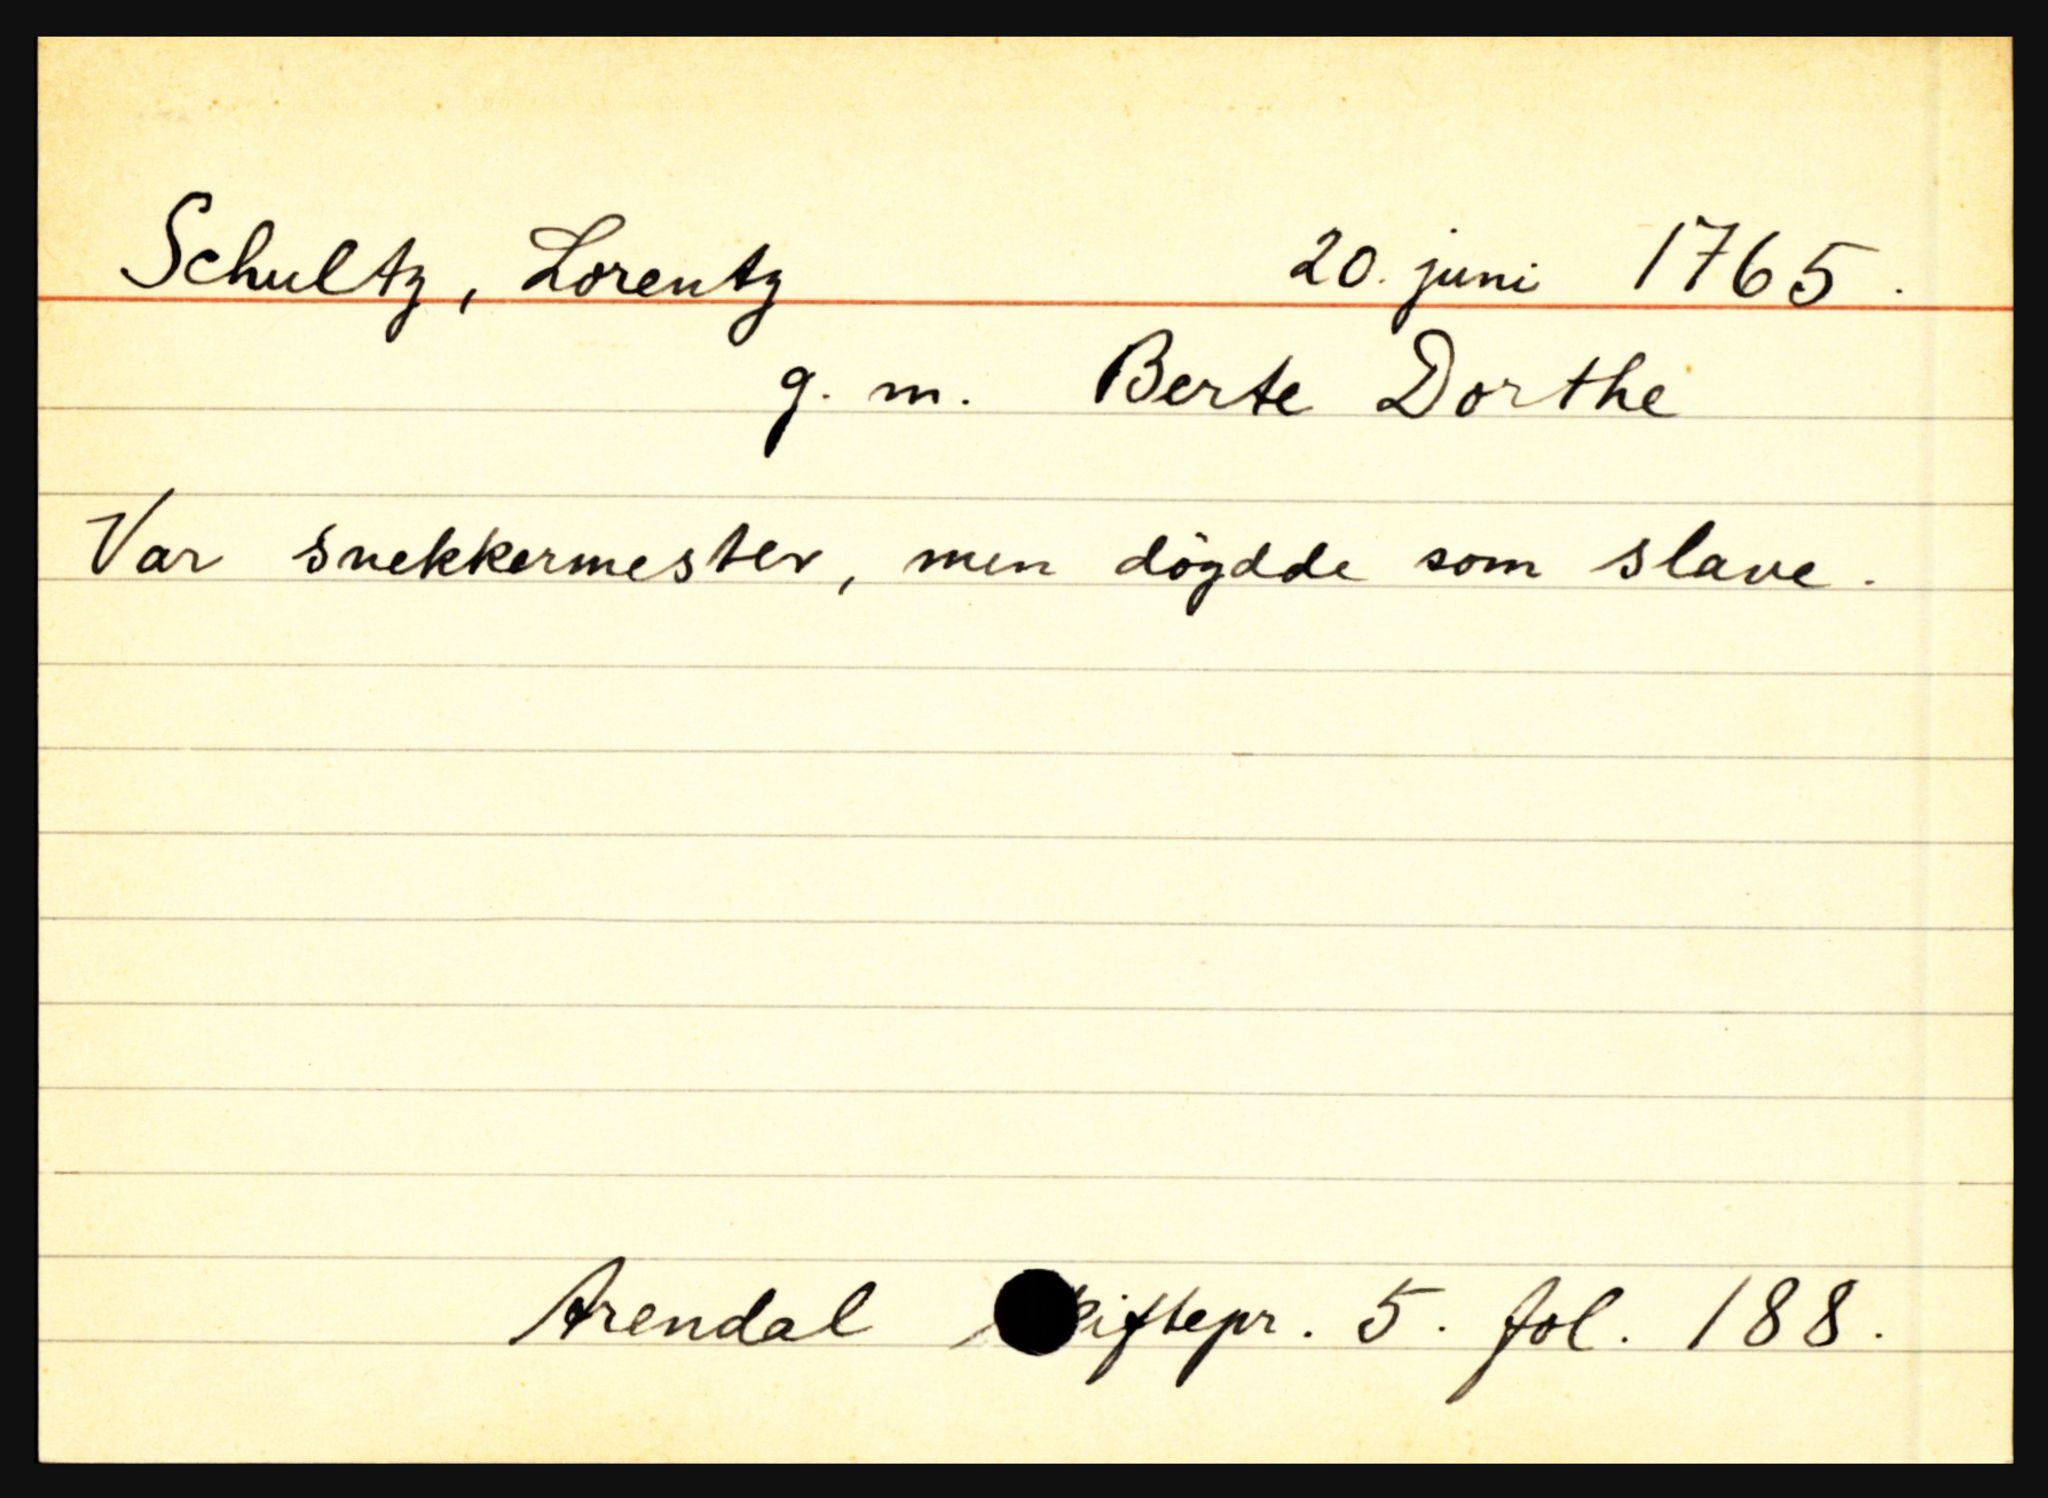 Schultz, Lorentz 20. juni 1765.
g. m. Berte Dorthe
Var snekkermester, men dögdde som slave.
Arendal skiftepr. 5. fol. 188.